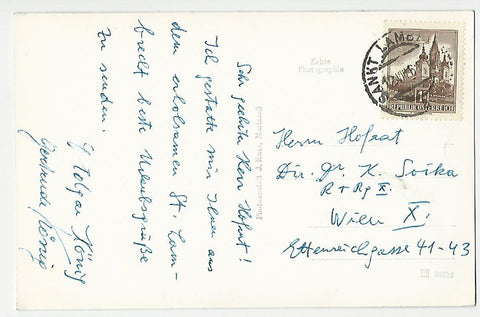 Sehr geehrter Herr Hofrat!
Ich gestatte mir Ihnen aus
dem erholsamen St. Lam-
brecht beste Urlaubsgrüße
zu senden.
Holger König
Gertrude König
Echte
Photographie
SANKT LAMB
REPUBLIK ÖSTERREICH
Herrn Hofrat
Dir. Dr. K. Soika
R + Rg X.
Wien X.
Ettenreichgasse 41-43